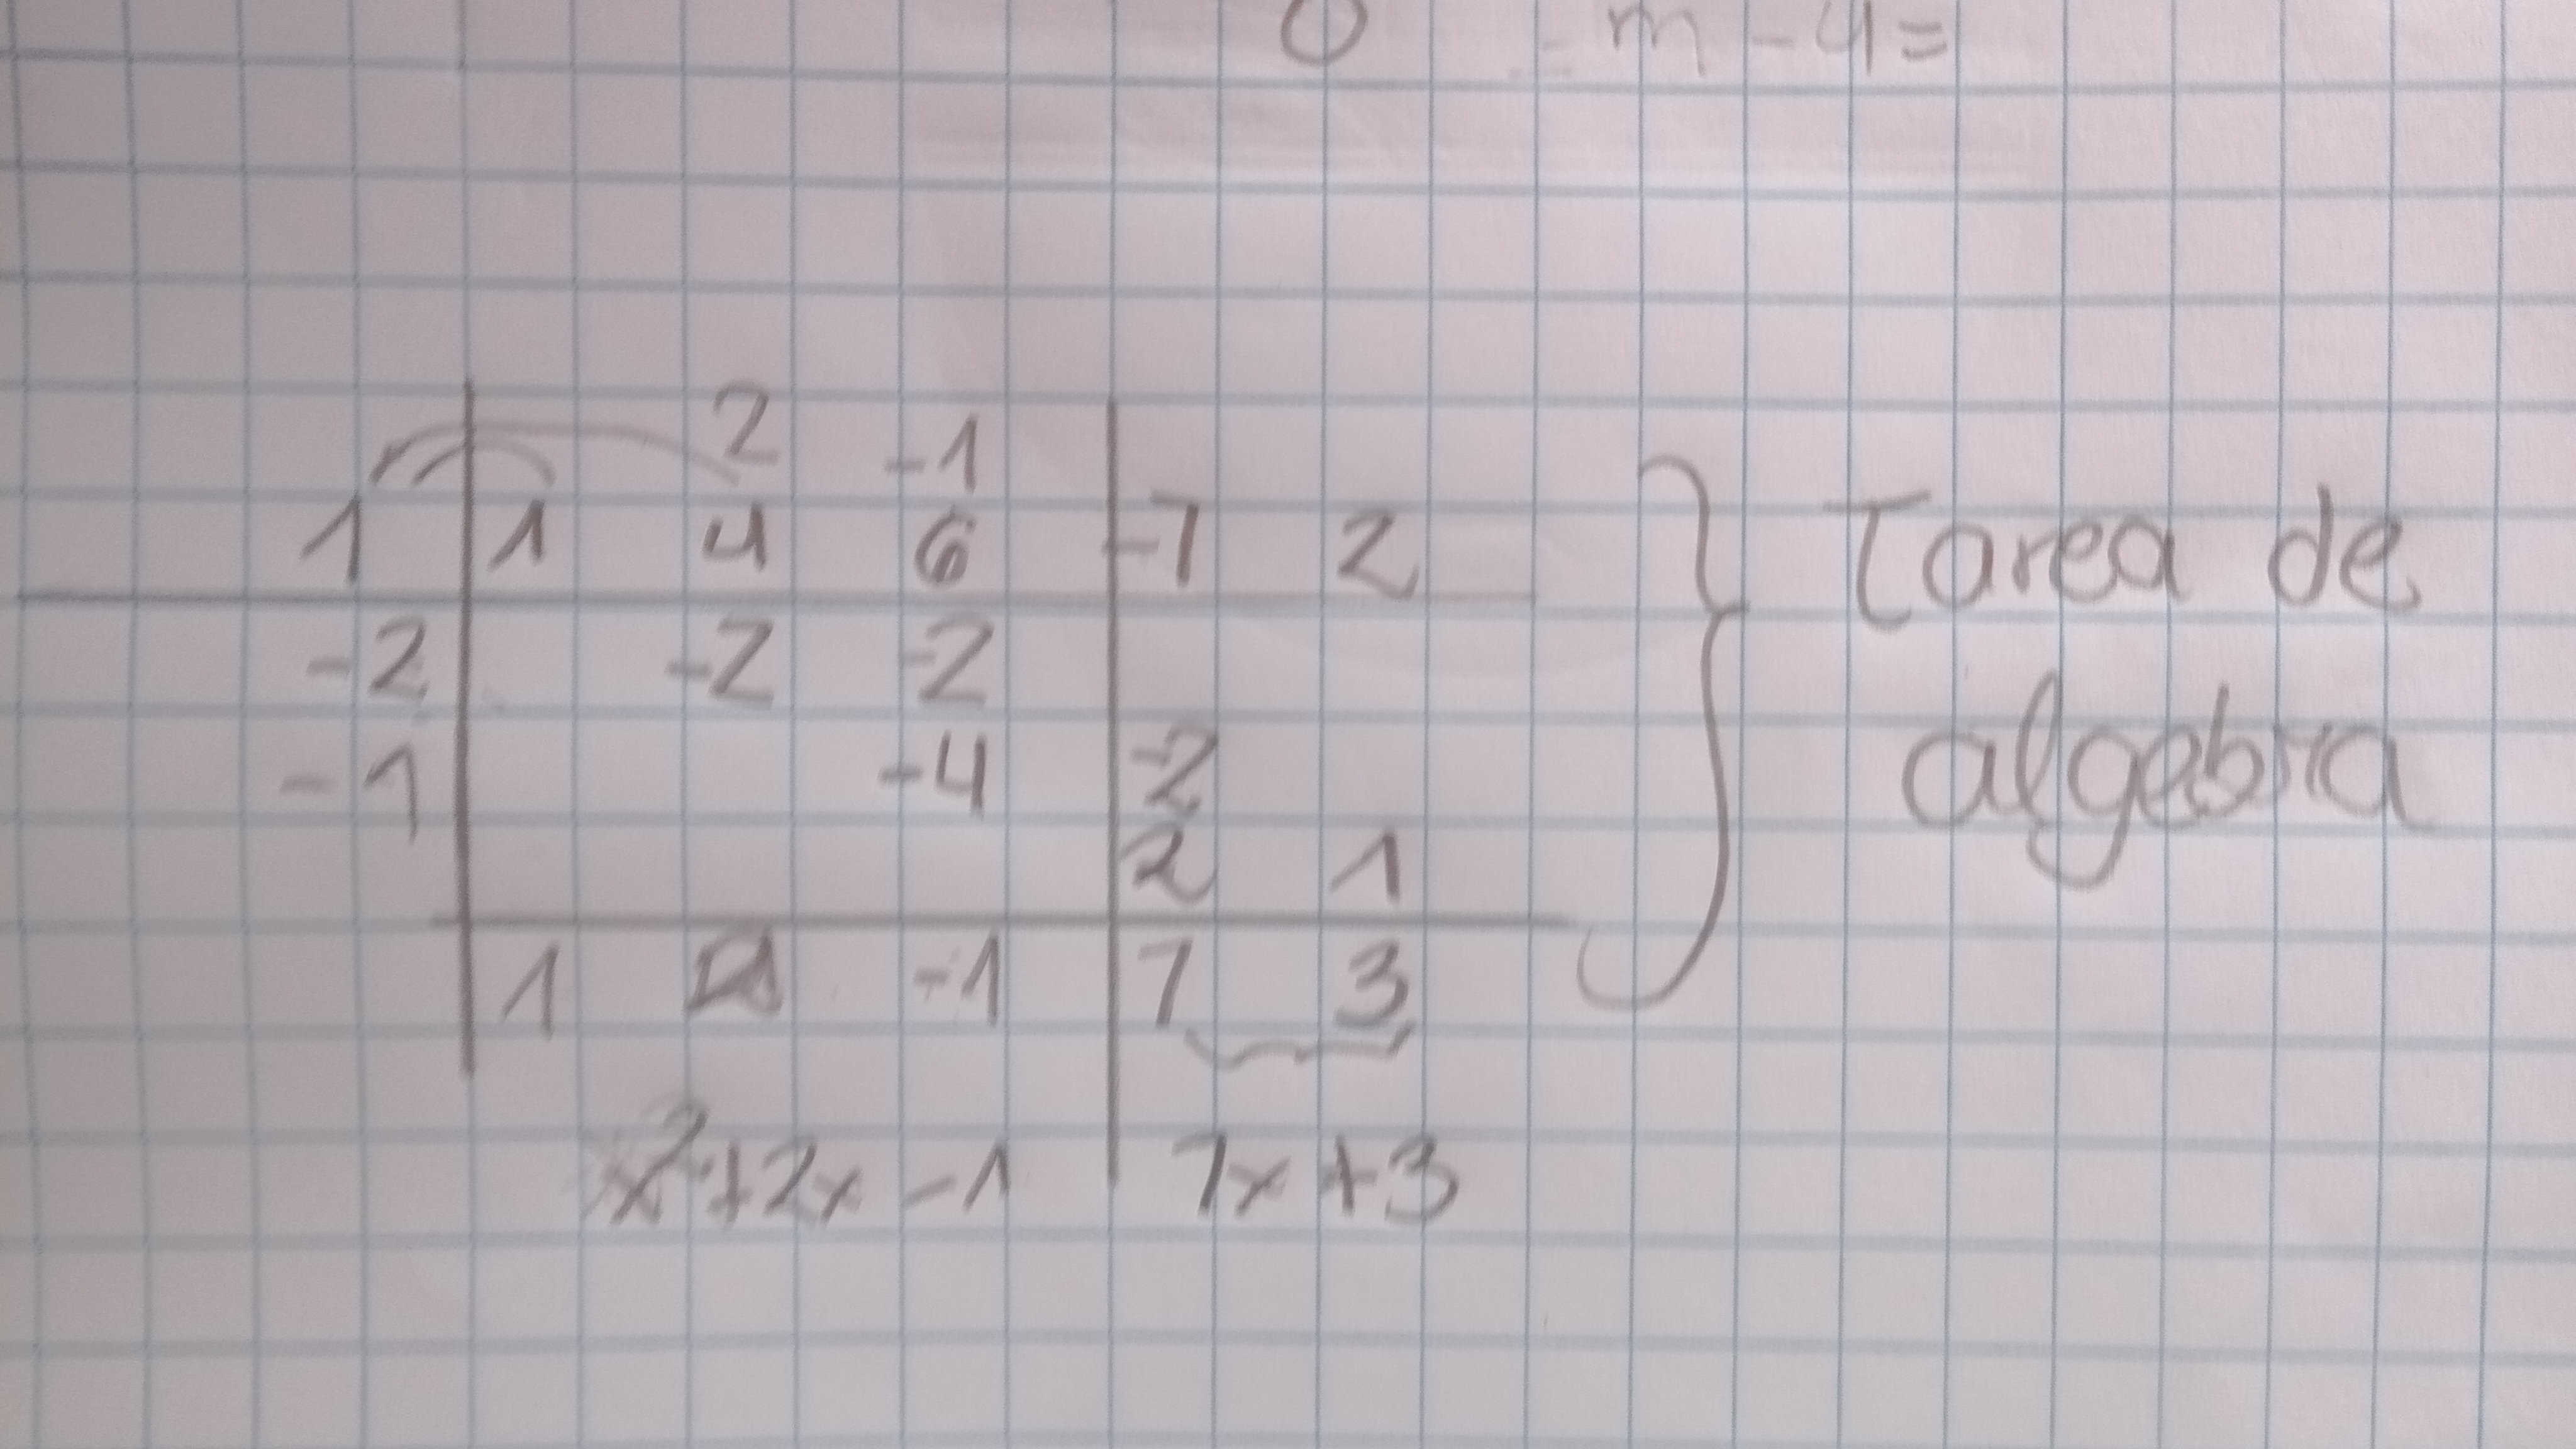 0 = m - 4 =
2 -1
1 1 4 6 -7 2
-2 -2 -2
-1 -4 -2
2 1
1 -1 7 3
x²+2x -1 7x+3
Tarea de
algebra